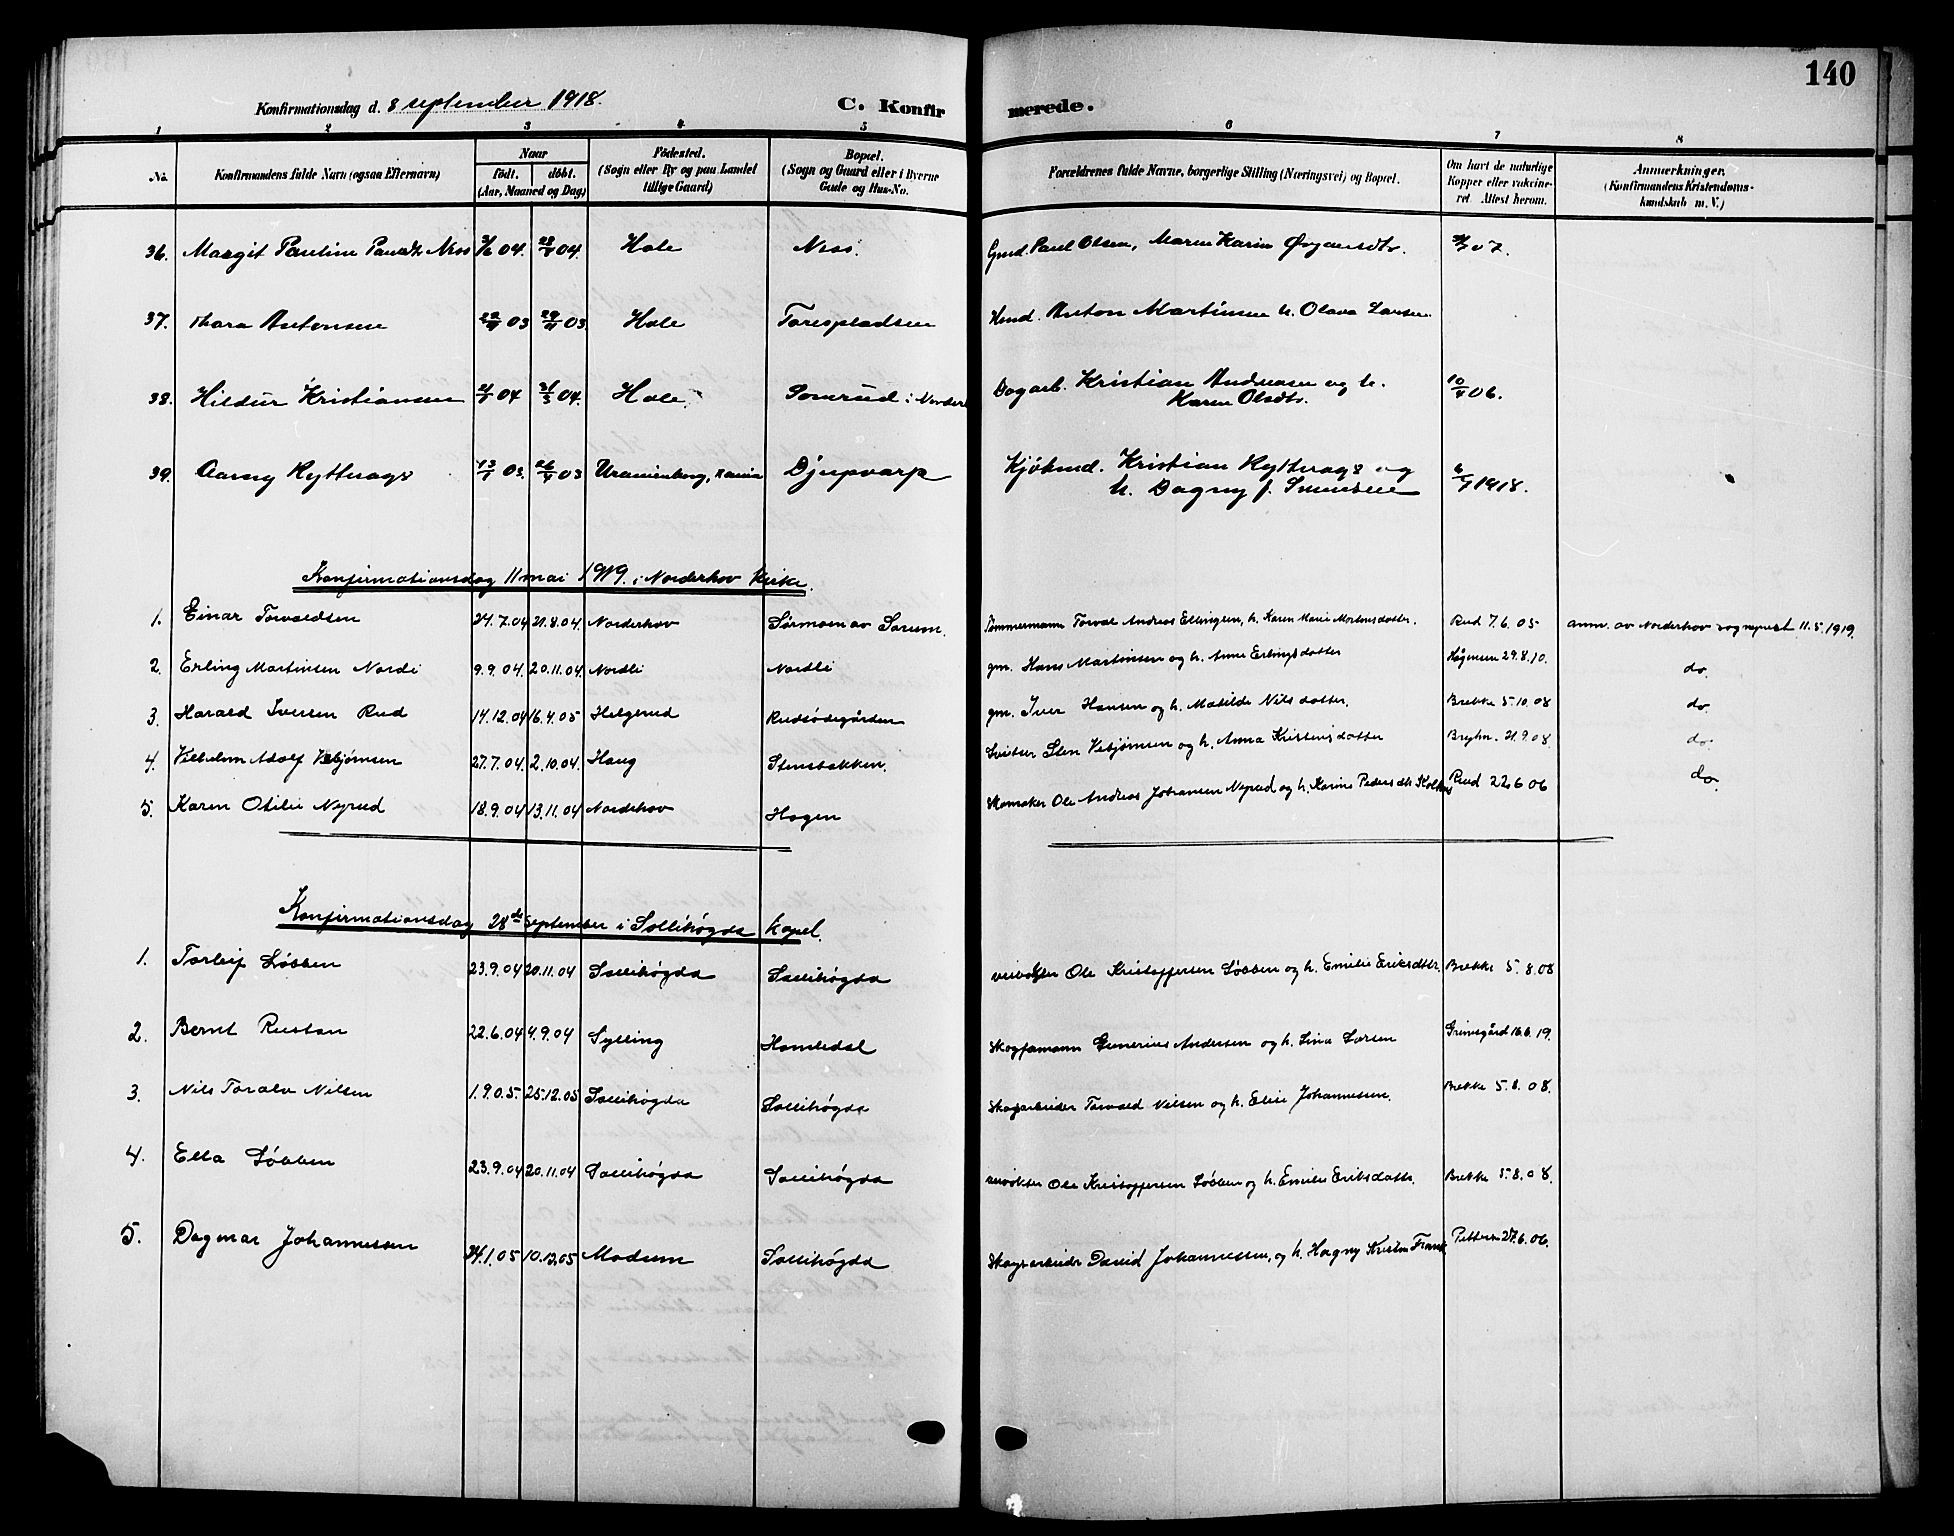 140
Konfirmationsdag d. 8 september 1918.
C. Konfirmerede.
1 2 3 4 5 6 7 8
No. Konfirmandens fulde Navn (ogsaa Efternavn) Naar født. døbt. (Aar, Maaned og Dag) Fødested. (Sogn eller By og paa Landet tillige Gaard) Bopæl. (Sogn og Gaard eller i Byerne Gade og Hus-No. Forældrenes fulde Navne, borgerlige Stilling (Næringsvei) og Bopæl. Om havt de naturlige Kopper eller vakcineret. Attest herom. Anmerkninger. (Konfirmandens Kristendomskundskab m. V.)
36. Margit Pauline 04. 04. Hole Gmd. Paul Olsen, Maren Karin 07.
37. Thora Antonsen 03 03. Hole Torespladsen Anton Martinsen h. Olava Larsen
38. Hildur Kristiansen 04 04. Hole Somrud i Norder Dagarb. Kristian Andreasen og h. 06.
Karen Olsdtr.
39. Aasny Rytterager 03. 03 Uranienborg, Djupvarp Kjøbmd. Kristian Rytterager og 1918.
h. Dagny f. Svensen
Konfirmationsdag 11 mai 1919. i Norderhov Kirke.
1. Einar Torvaldsen 24.7.04 21.8.04. Norderhov Sørmoen av Sørum. Tømmermann Torval Andreas Ellingsen, h. Karen Marie Mortensdatter. Rud 7.6.05 anm. av Norderhov sogneprest 11.5.1919.
2. Erling Martinsen Nordli 9.9.04. 20.11.04. Nordli Nordli gm. Hans Martinsen og h. Anne Erlingsdatter Høgensen 29.8.10. do.
3. Harald Iversen Rud 17.12.04 16.4.05 Helgerud Rudsødegården gm. Iver Hansen og h. Matilde Nilsdatter. Brekke 5.10.08 do.
4. Vilhelm Adolf Vebjørnsen 27.7.04. 2.10.04. Haug Stensbakken. Sten Vebjørnsen og h. Anna Kristensdatter 21.9.08. do.
5. Karen Otilie Nyrud 18.9.04 13.11.04 Norderhov Hagen Skomaker Ole Andreas Johansen Nyrud og h. Karine Pedersdtr. Rud 22.6.06 do.
Konfirmationsdag 28de september i Sollihøgda kapel.
1. Torleif Løbben 23.9.04 20.11.04 Sollihøgda Sollihøgda veivokter Ole Kristoffersen Løbben og h. Emilie Eriksdatr. Brekke 5.8.08
2. Bernt Rustan 22.6.04 4.9.04 Sylling Homledal Gunerius Andersen og h. Lina Larsen Grinisgård 16.6.19.
3. Nils Toralv Nilsen 1.9.05. 25.12.05 Sollihøgda Sollihøgda Skogsarbeider Torvald Nilsen og h. Elise Johannessen. Brekke 5.8.08.
4. Ella Løbben 23.9.04 20.11.04 Sollihøgda Sollihøgda veivokter Ole Kristoffersen Løbben og h. Emilie Eriksdattr. Brekke 5.8.08.
5. Dagmar Johannessen 24.1.05 10.12.05 Modum Sollihøgda Skogsarbeider David Johannessen, og h. Hagny Kristin Frank 27.6.06.